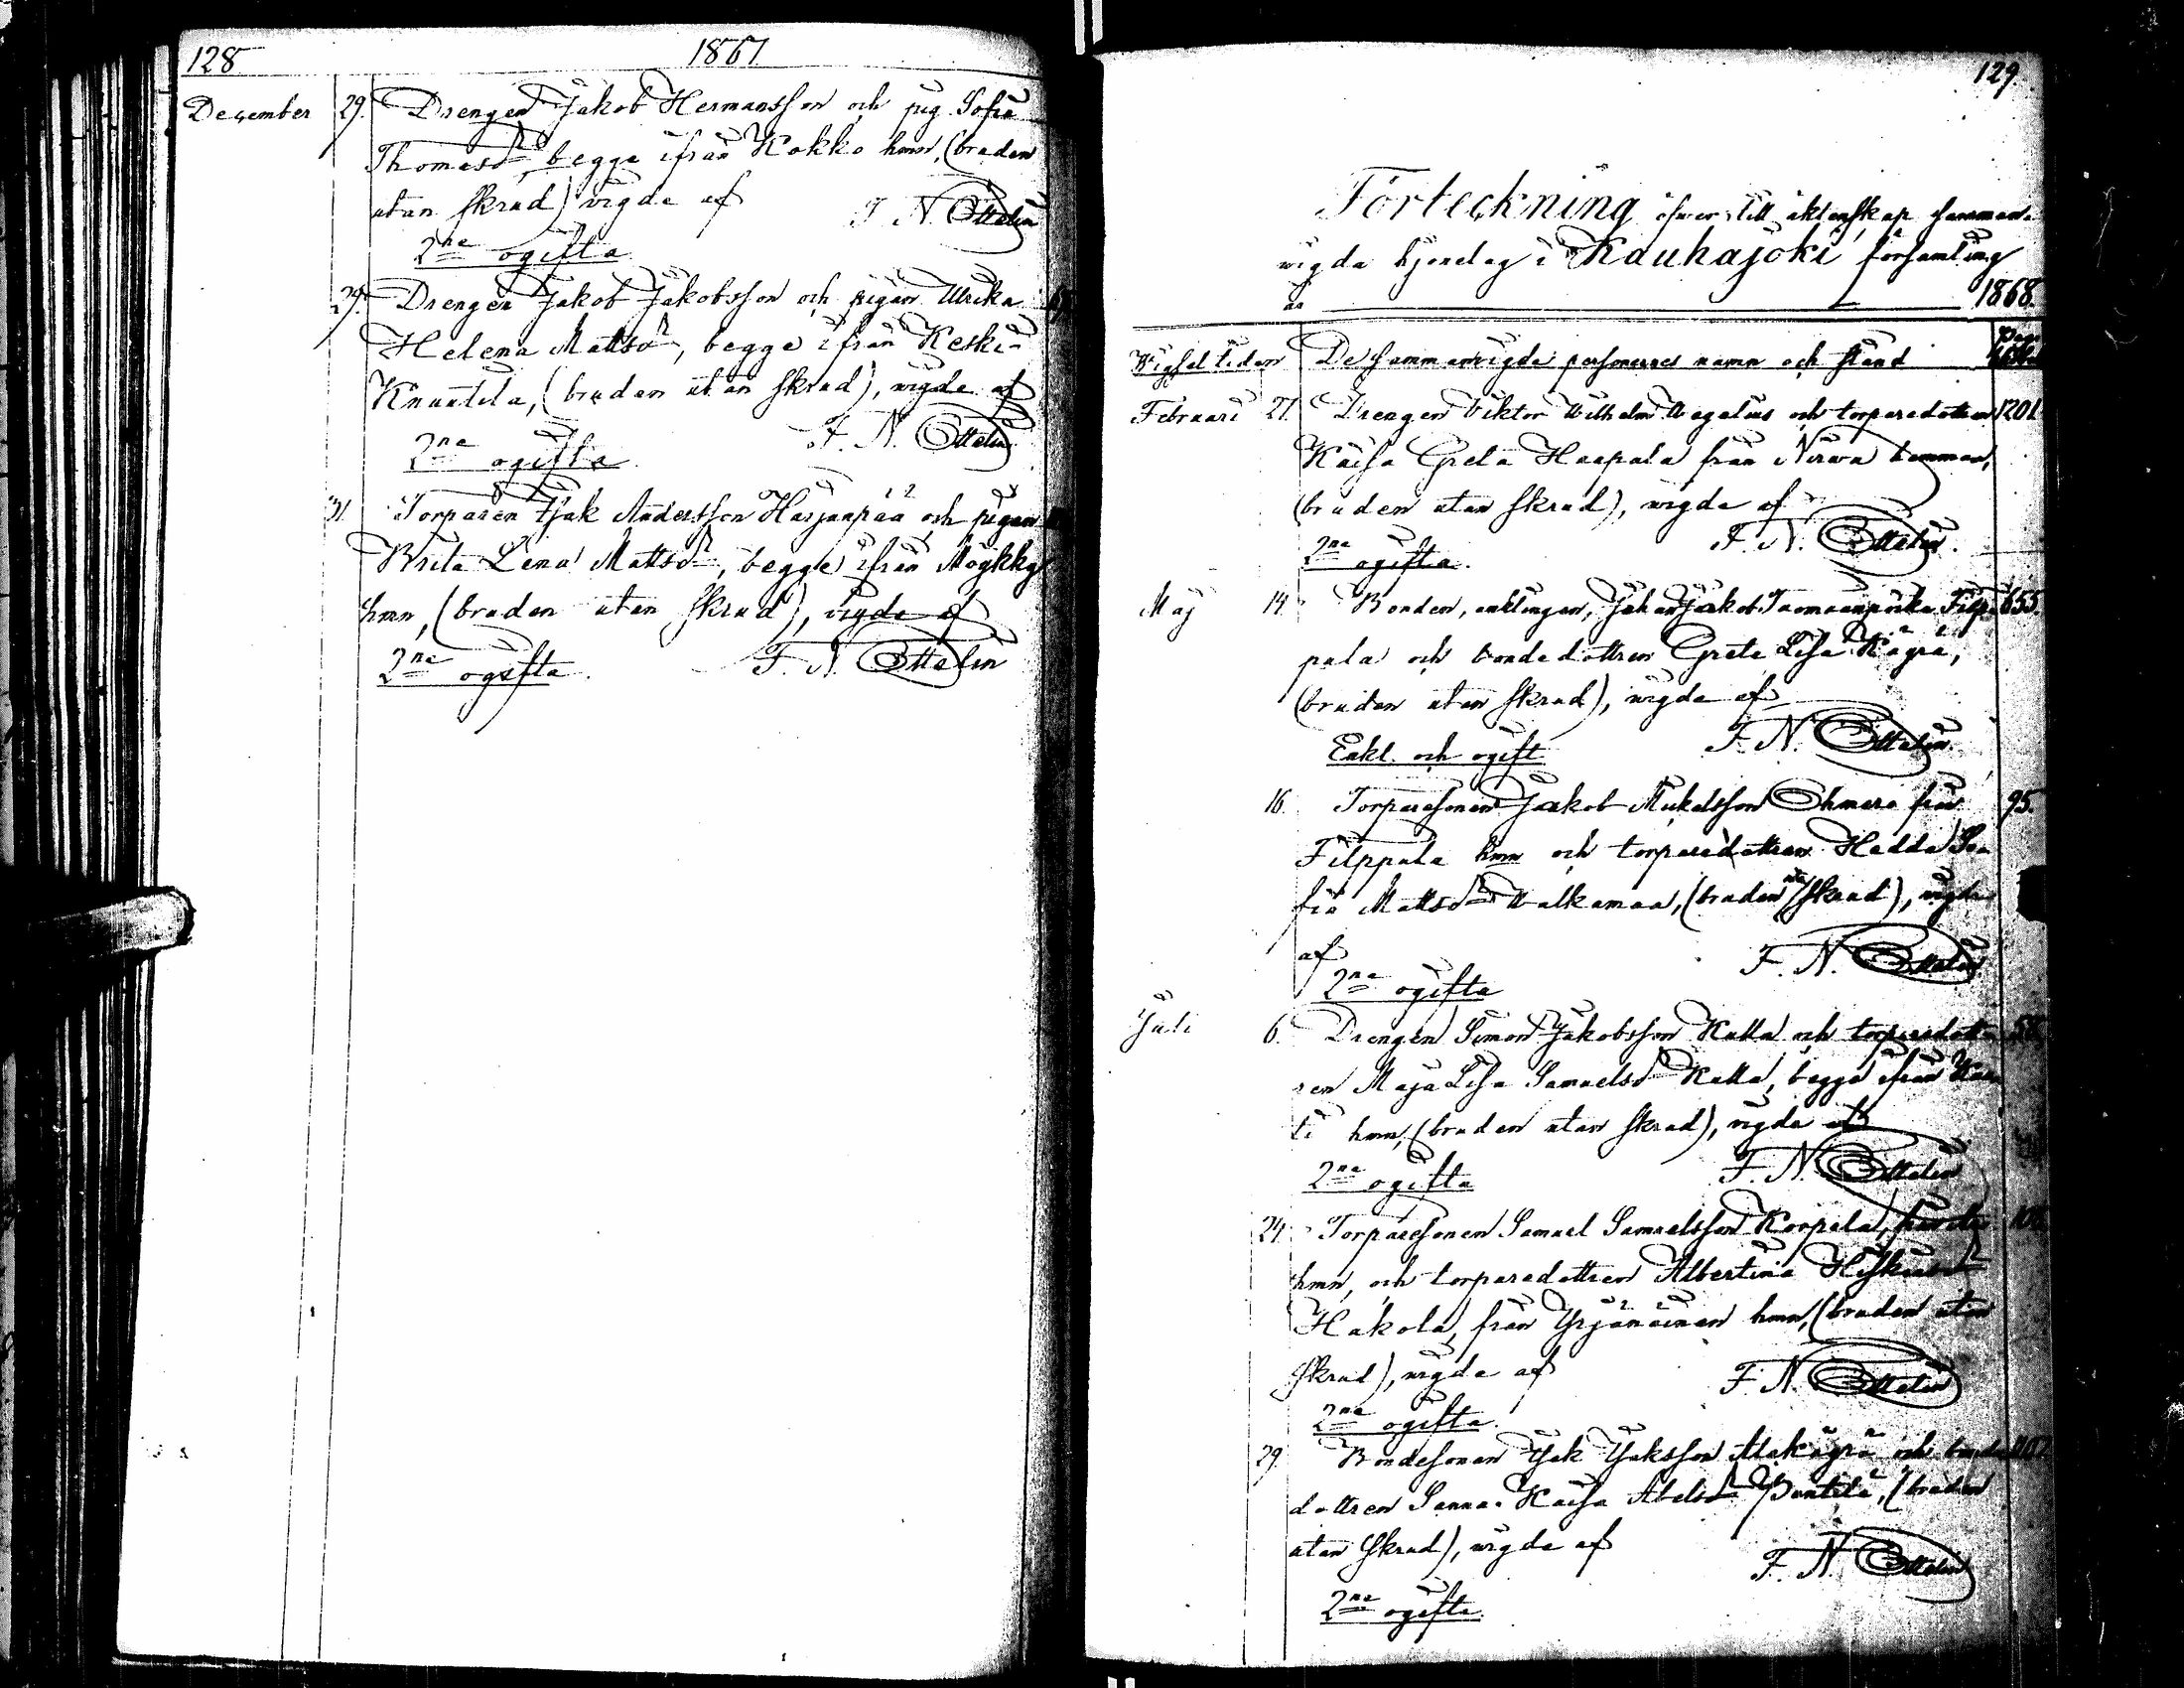 128. 1867.
December 29. Drengen Jakob Hermansson och pig. Sofia
Thomasdr, begge ifrån Kokko hmn, (bruden
utan skrud) vigde af F. N. Ottelin
2ne ogifta
29. Drengen Jakob Jakobsson och pigan Ulrika
Helena Mattsdr, begge ifrån Keski-
Knuutila, (bruden utan skrud), vigde af
2ne ogifta F. N. Ottelin
31. Torparen Isak Andersson Harjanpää och pigan
Brita Lena Mattsdr, begge ifrån Möykky
hmn, (bruden utan skrud), vigde af
2ne ogifta. F. N. Ottelin
129.
Förteckning öfver till äktenskap samman-
vigda hjonelag i Kauhajoki församling
år 1868.
Vigseltiden De sammanvigde personernes namn och stånd Pag.
Februari 27. Drengen Viktor Wilhelm Wegelius och torparedottren 1201.
Kaisa Greta Haapala från Nirva hemman,
(bruden utan skrud), vigde af
2ne ogifta. F. N. Ottelin.
Maj 14. Bonden, enklingen, Johan Jakob Filp- 655.
pula och bondedottren Greta Lisa Kägrä,
(bruden utan skrud), vigde af
Enkl. och ogift F. N. Ottelin.
16. Torparesonen Jakob Mickelsson från 95.
Filppula hmn och torparedottren Hedda So-
fia Mattsdr Walkamaa, (bruden utan skrud), vigde
af F. N. Ottelin
2ne ogifta
Juli 6. Drengen Simon Jakobsson Kalla och torparedott-
ren Maja Lisa Samuelsdr Kalla, begge ifrån
hmn, (bruden utan skrud), vigde af
2ne ogifta F. N. Ottelin
24. Torparesonen Samuel Samuelsson Korpela,
hmn, och torparedottren Albertina
Hakola, från Yrjänäinen hmn, (bruden utan
skrud), vigde af F. N. Ottelin
2ne ogifta.
29. Bondesonen Isak Isaksson Alakägrä och bonde-
dottren Sanna Kaisa Abelsdr Pentilä, (bruden
utan skrud), vigde af
F. N. Ottelin
2ne ogifta.